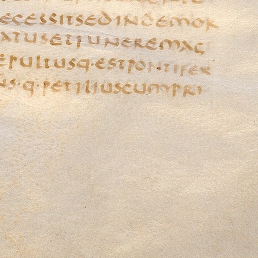 ECESSITSEDINDEMOR
ATUSETFUNEREMAG
EPULTUSQ·ESTPONTIFEX
US·Q·PETILIUSCUMPRI